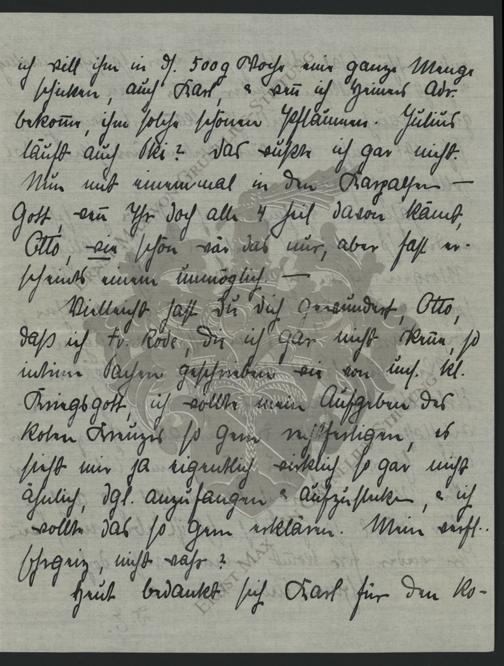 ich will ihm in d. 500g Woche eine ganze Menge
schicken, auch Karl, & wenn ich Heiners Adr.
bekomme, ihm solche schönen Pflaumen. Julius
läuft auch Ski? Das wußte ich gar nicht.
Nun mit einemmal in den Karpathen —
Gott, wenn Ihr doch alle 4 heil davon kämt,
Otto, wie schön wär das nur, aber fast er-
scheints einem unmöglich —
Vielleicht hast Du Dich gewundert, Otto,
daß ich Fr. Rode, die ich gar nicht kenne, so
intime Sachen geschrieben wie von uns. kl.
Kriegsgott, ich wollte mein Aufgeben des
Roten Kreuzes so gern rechtfertigen, es
sieht mir ja eigentlich wirklich so gar nicht
ähnlich, dgl. anzufangen & aufzustecken, & ich
wollte das so gern erklären. Mein verfl..
Ehrgeiz, nicht wahr?
Heut bedankt sich Karl für den Ko-